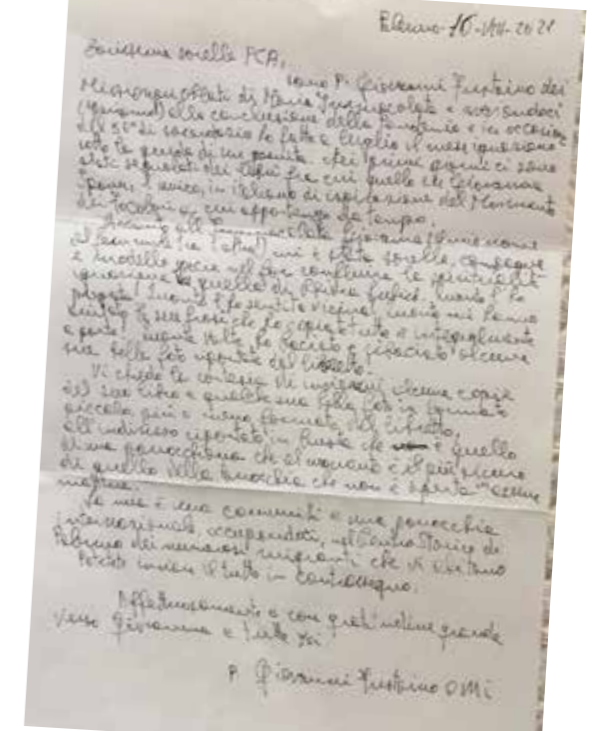 Palermo 16-VIII-2021
Carissime sorelle PCA,
sono P. Giovanni dei
Missionari Oblati di Maria Immacolata e
alla conclusione della Pandemia e in occasione
del 55° di sacerdozio ho fatto a luglio il mese ignaziano
sotto la guida di un gesuita. Nei primi giorni ci sono
stati segnalati dei libri fra cui quello di Giovanna
Spanu, unico, in italiano di ispirazione del Movimento
dei Focolari a cui appartengo da tempo.
mi è stata sorella, compagna
e modello anche nel far confluire la spiritualità
ignaziana e quella di Chiara Lubich. Quanto l'ho
pregata, quanto l'ho sentita vicina, quanto mi hanno
aiutato le sue frasi che ho copiato tutte e integralmente
e quante volte ho baciato e ribaciato alcune
sue belle foto riportate dal libretto.
Vi chiedo la cortesia di inviarmi alcune copie
del suo libro e qualche sua bella foto in formato
piccolo, più o meno formato del libretto,
all'indirizzo riportato in busta che è quello
di una parrocchiana che al momento è il più sicuro
di quello della parrocchia che non è aperta
mattina.
La mia è una comunità e una parrocchia
internazionale, occupandoci, nel Centro Storico di
Palermo dei numerosi migranti che vi abitano
Potete inviare il tutto in contrassegno.
Affettuosamente e con gratitudine grande
verso Giovanna e tutte voi
P. Giovanni OMI